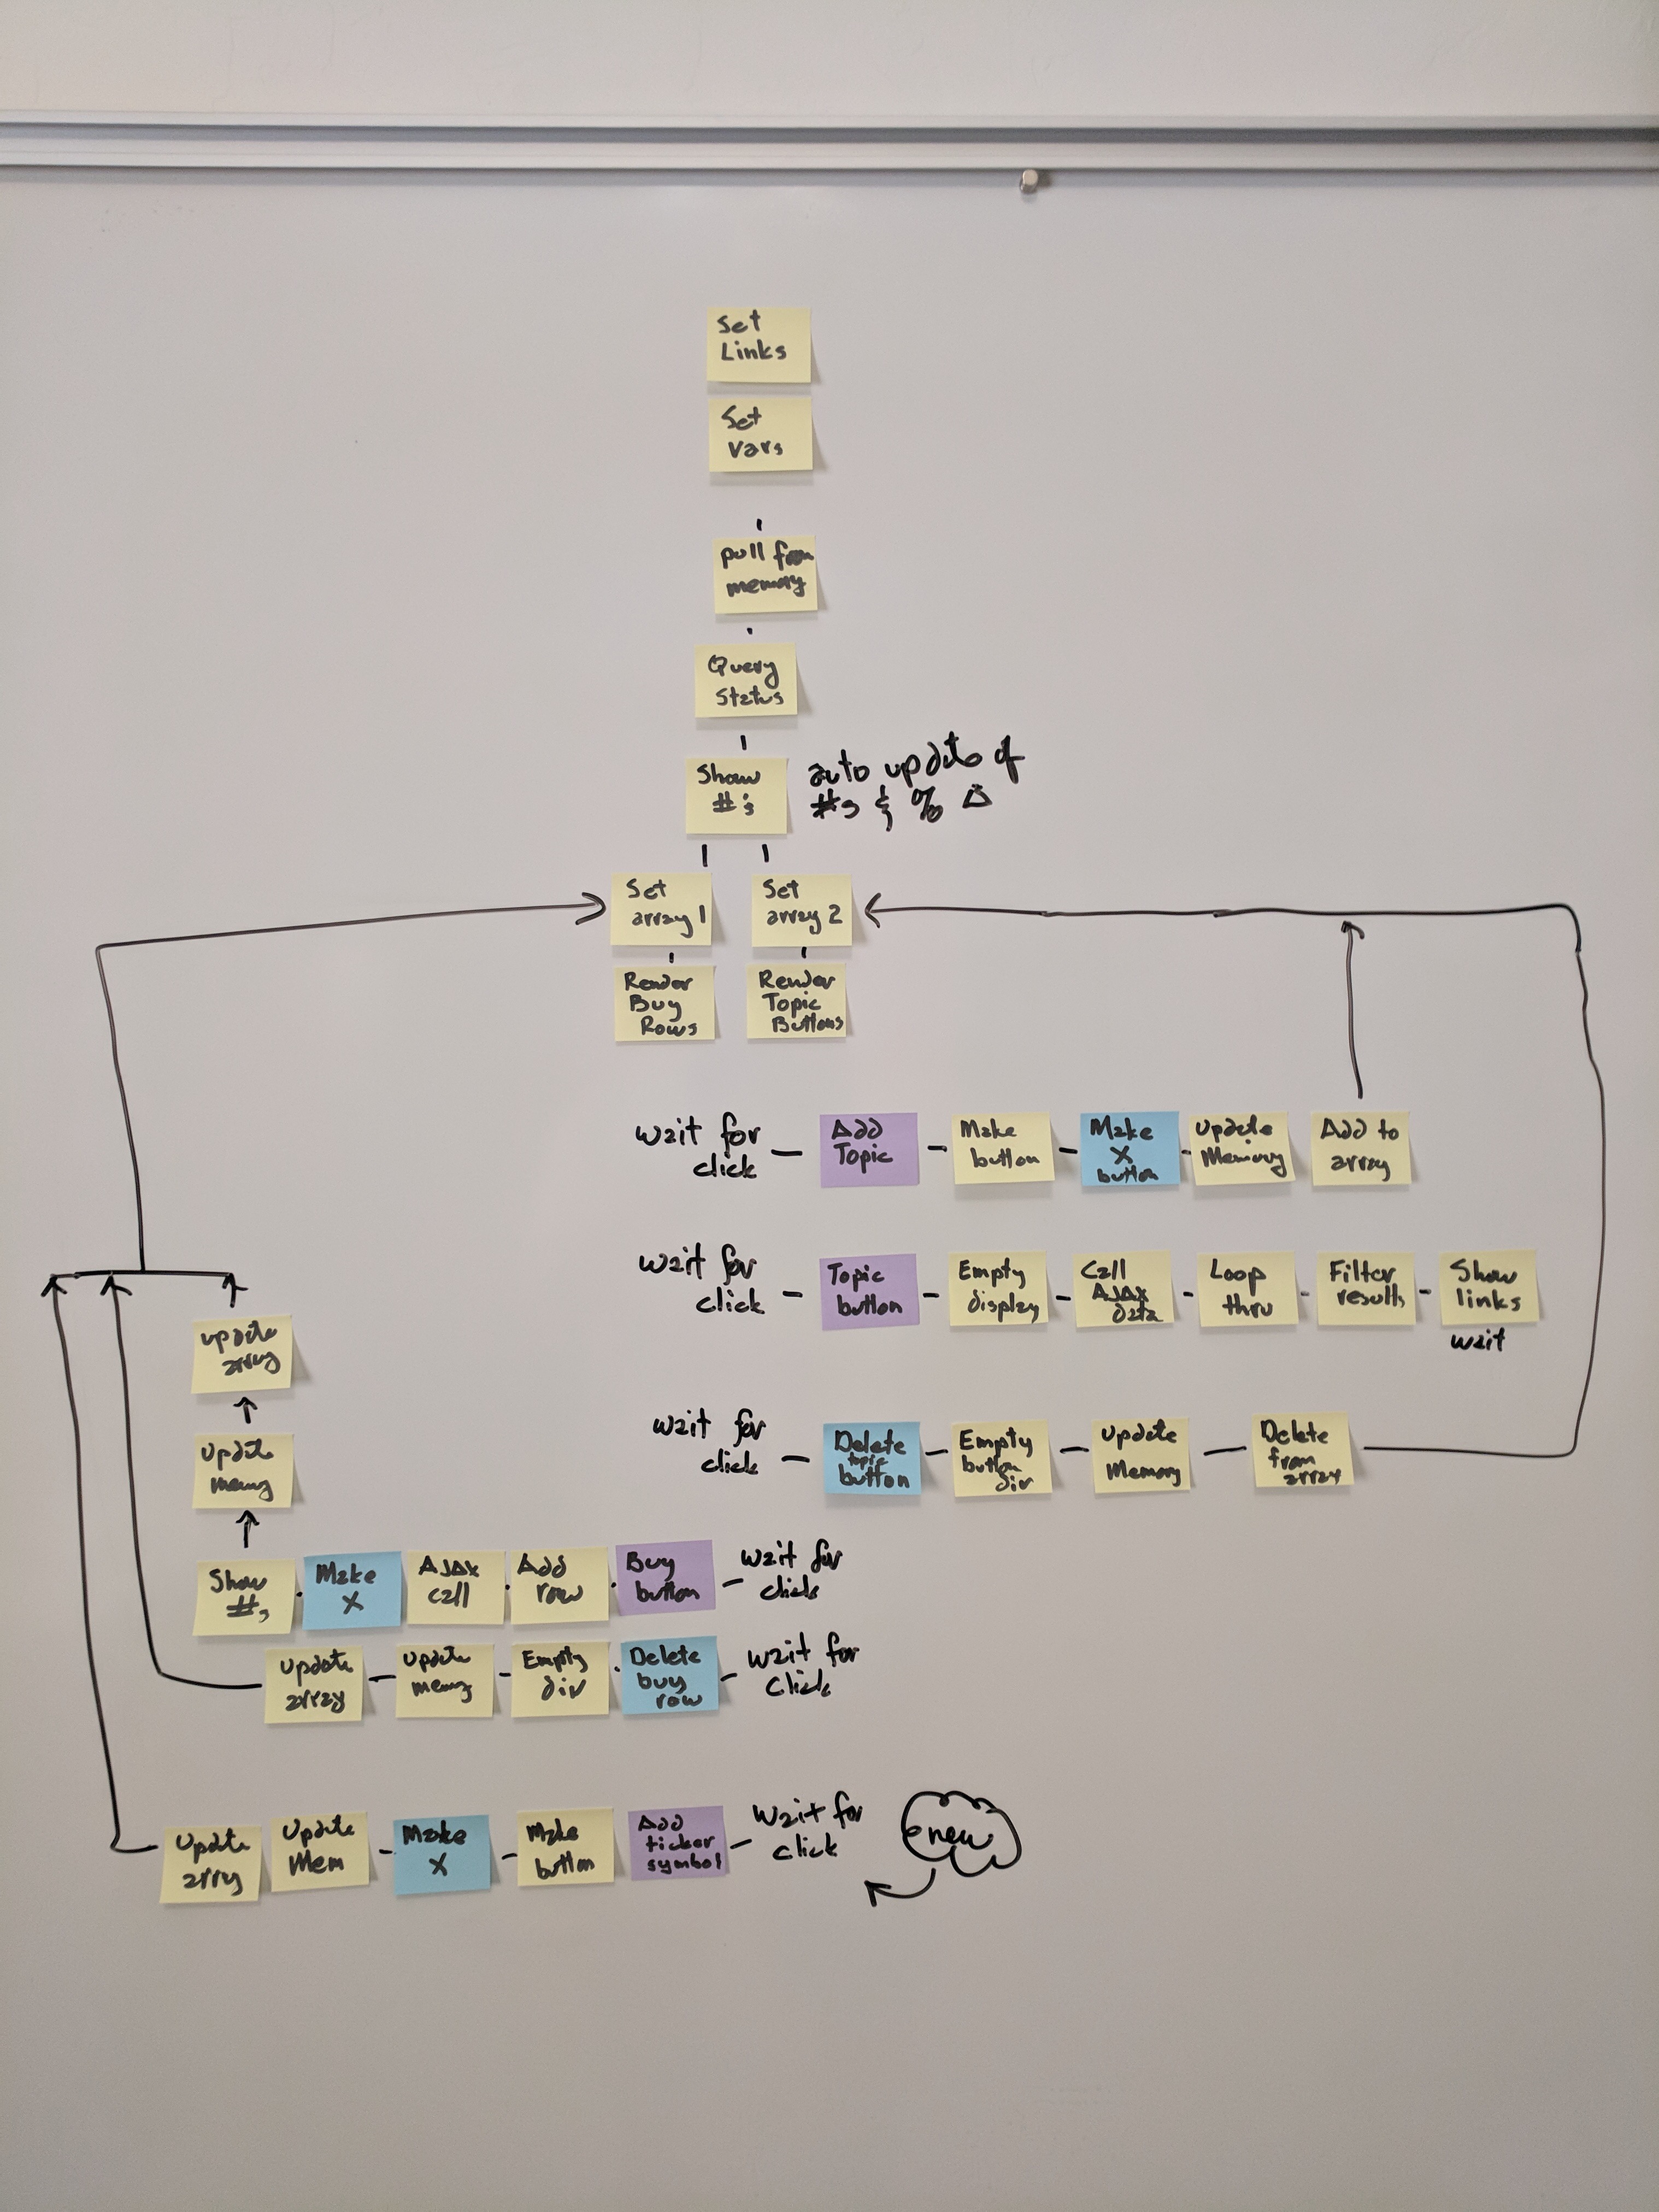 Set
Links
Set
Vars
pull from
memory
Query
Status
Show
#'s
auto update of
#s & % Δ
Set
array 1
Set
array 2
Render
Buy
Rows
Render
Topic
Buttons
wait for
click
Add
Topic
Make
button
Make
X
button
Update
Memory
Add to
array
wait for
click
Topic
button
Empty
display
Call
AJAX
data
Loop
thru
Filter
results
Show
links
wait
wait for
click
Delete
topic
button
Empty
button
div
Update
Memory
Delete
from
array
update
array
update
memory
Show
#s
Make
X
AJAX
call
Add
row
Buy
button
wait for
click
update
array
update
memory
Empty
div
Delete
buy
row
wait for
click
Update
array
Update
Mem
Make
X
Make
button
Add
ticker
symbol
wait for
click
new